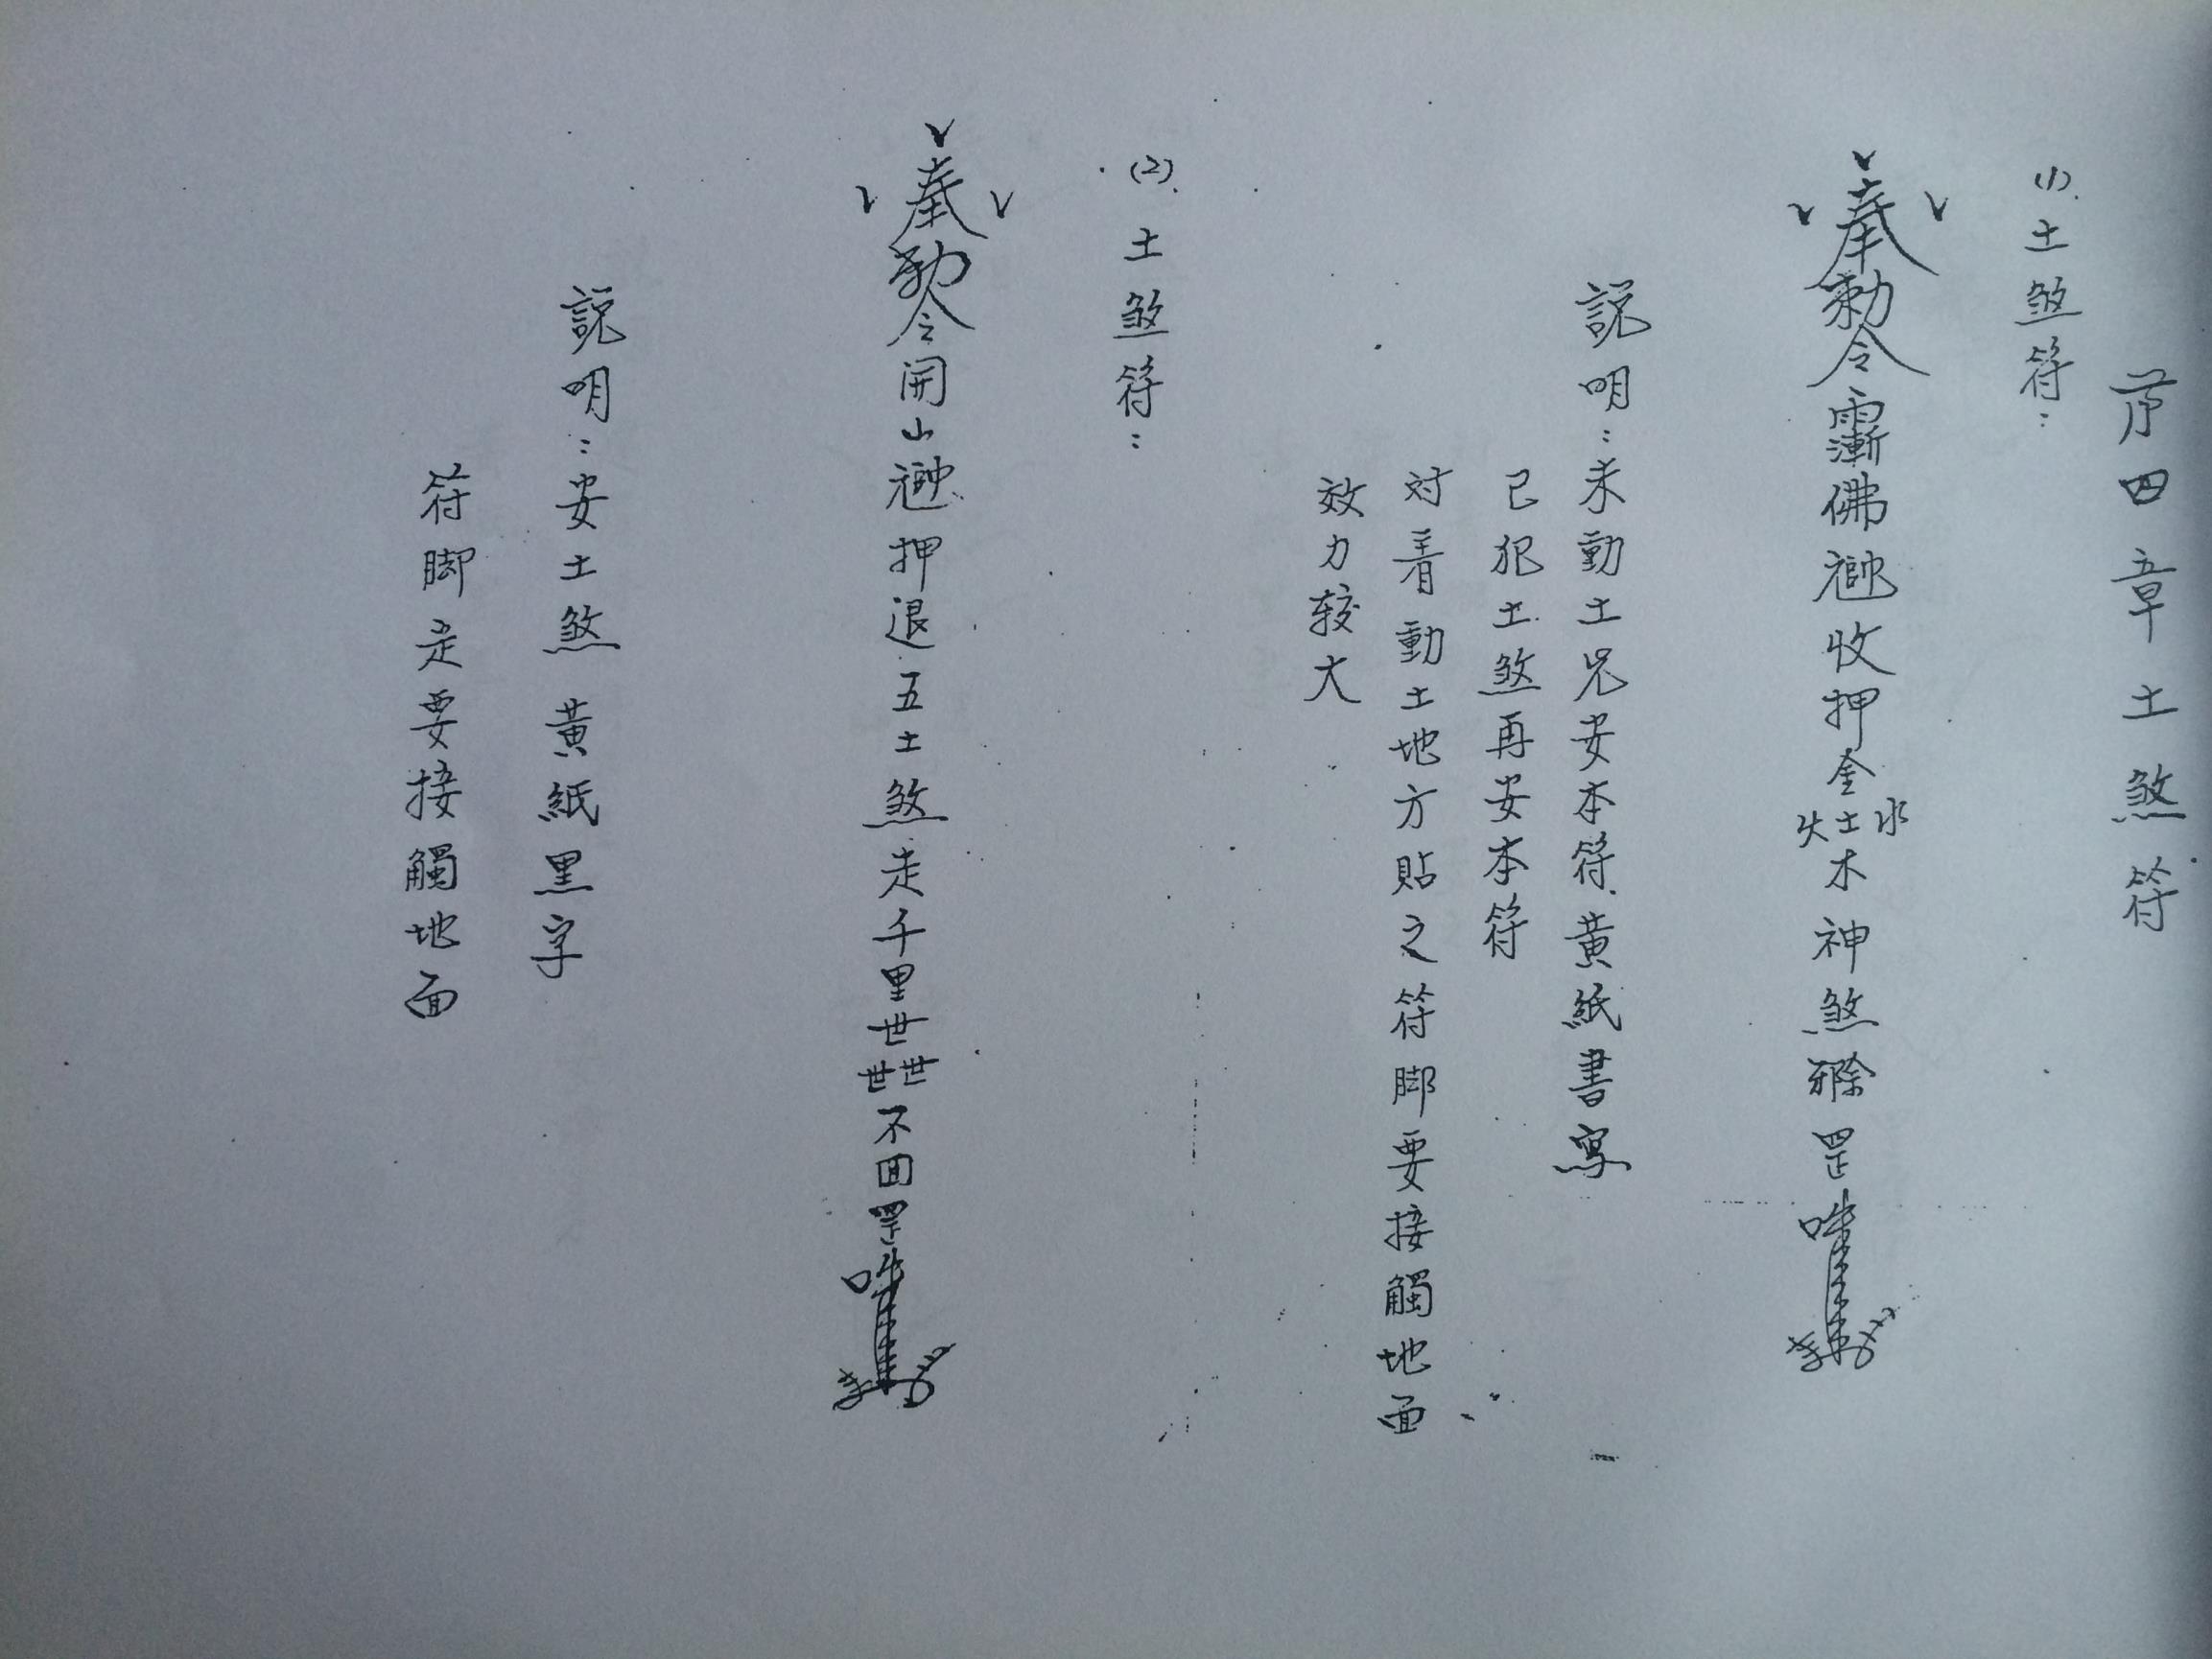 第四章土煞符
(1)土煞符：
奉勅令佛收押金水土火木神煞罡
説明：未動土先安本符黃紙書寫
已犯土煞再安本符
対着動土地方貼之符脚要接觸地面
效力較大
(2)土煞符：
奉勅令開山押退五土煞走千里世世世不回罡
説明：安土煞黃紙黑字
符脚走要接觸地面